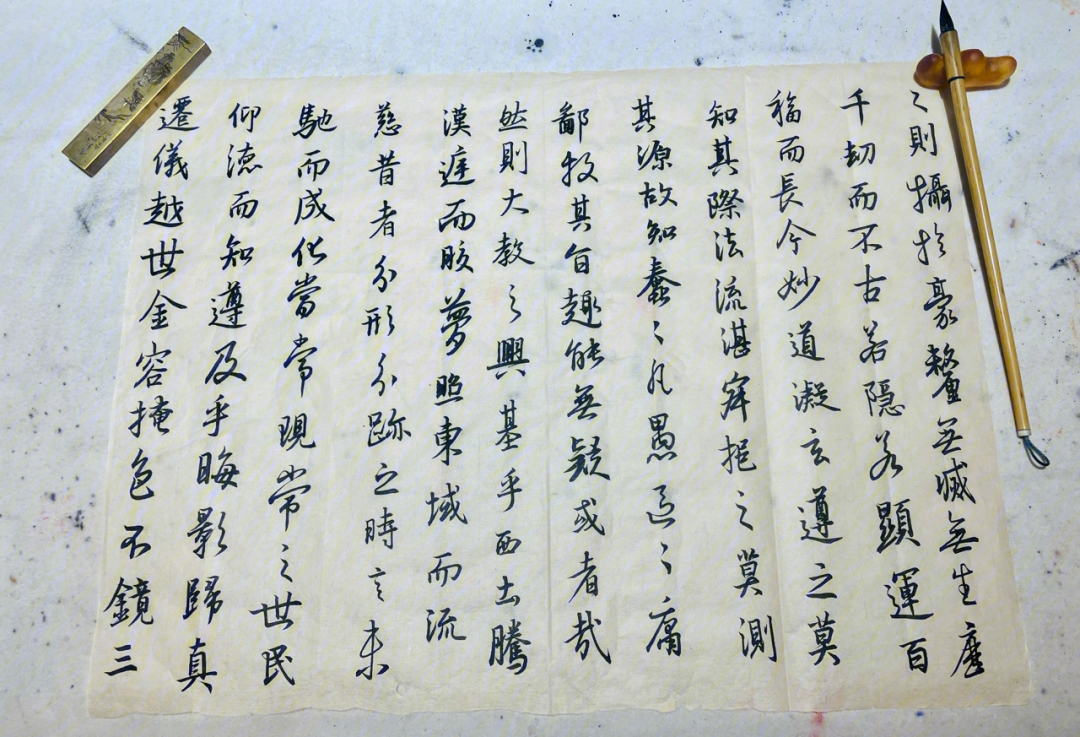 之則攝於豪釐無滅無生歷
千劫而不古若隱若顯運百
福而長今妙道凝玄遵之莫
知其際法流湛寂挹之莫測
其源故知蠢〻凡愚區〻庸
鄙投其旨趣能無疑或者哉
然則大教之興基乎西土騰
漢庭而皎夢照東域而流
慈昔者分形分跡之時言未
馳而成化當常現常之世民
仰德而知遵及乎晦影歸真
遷儀越世金容掩色不鏡三